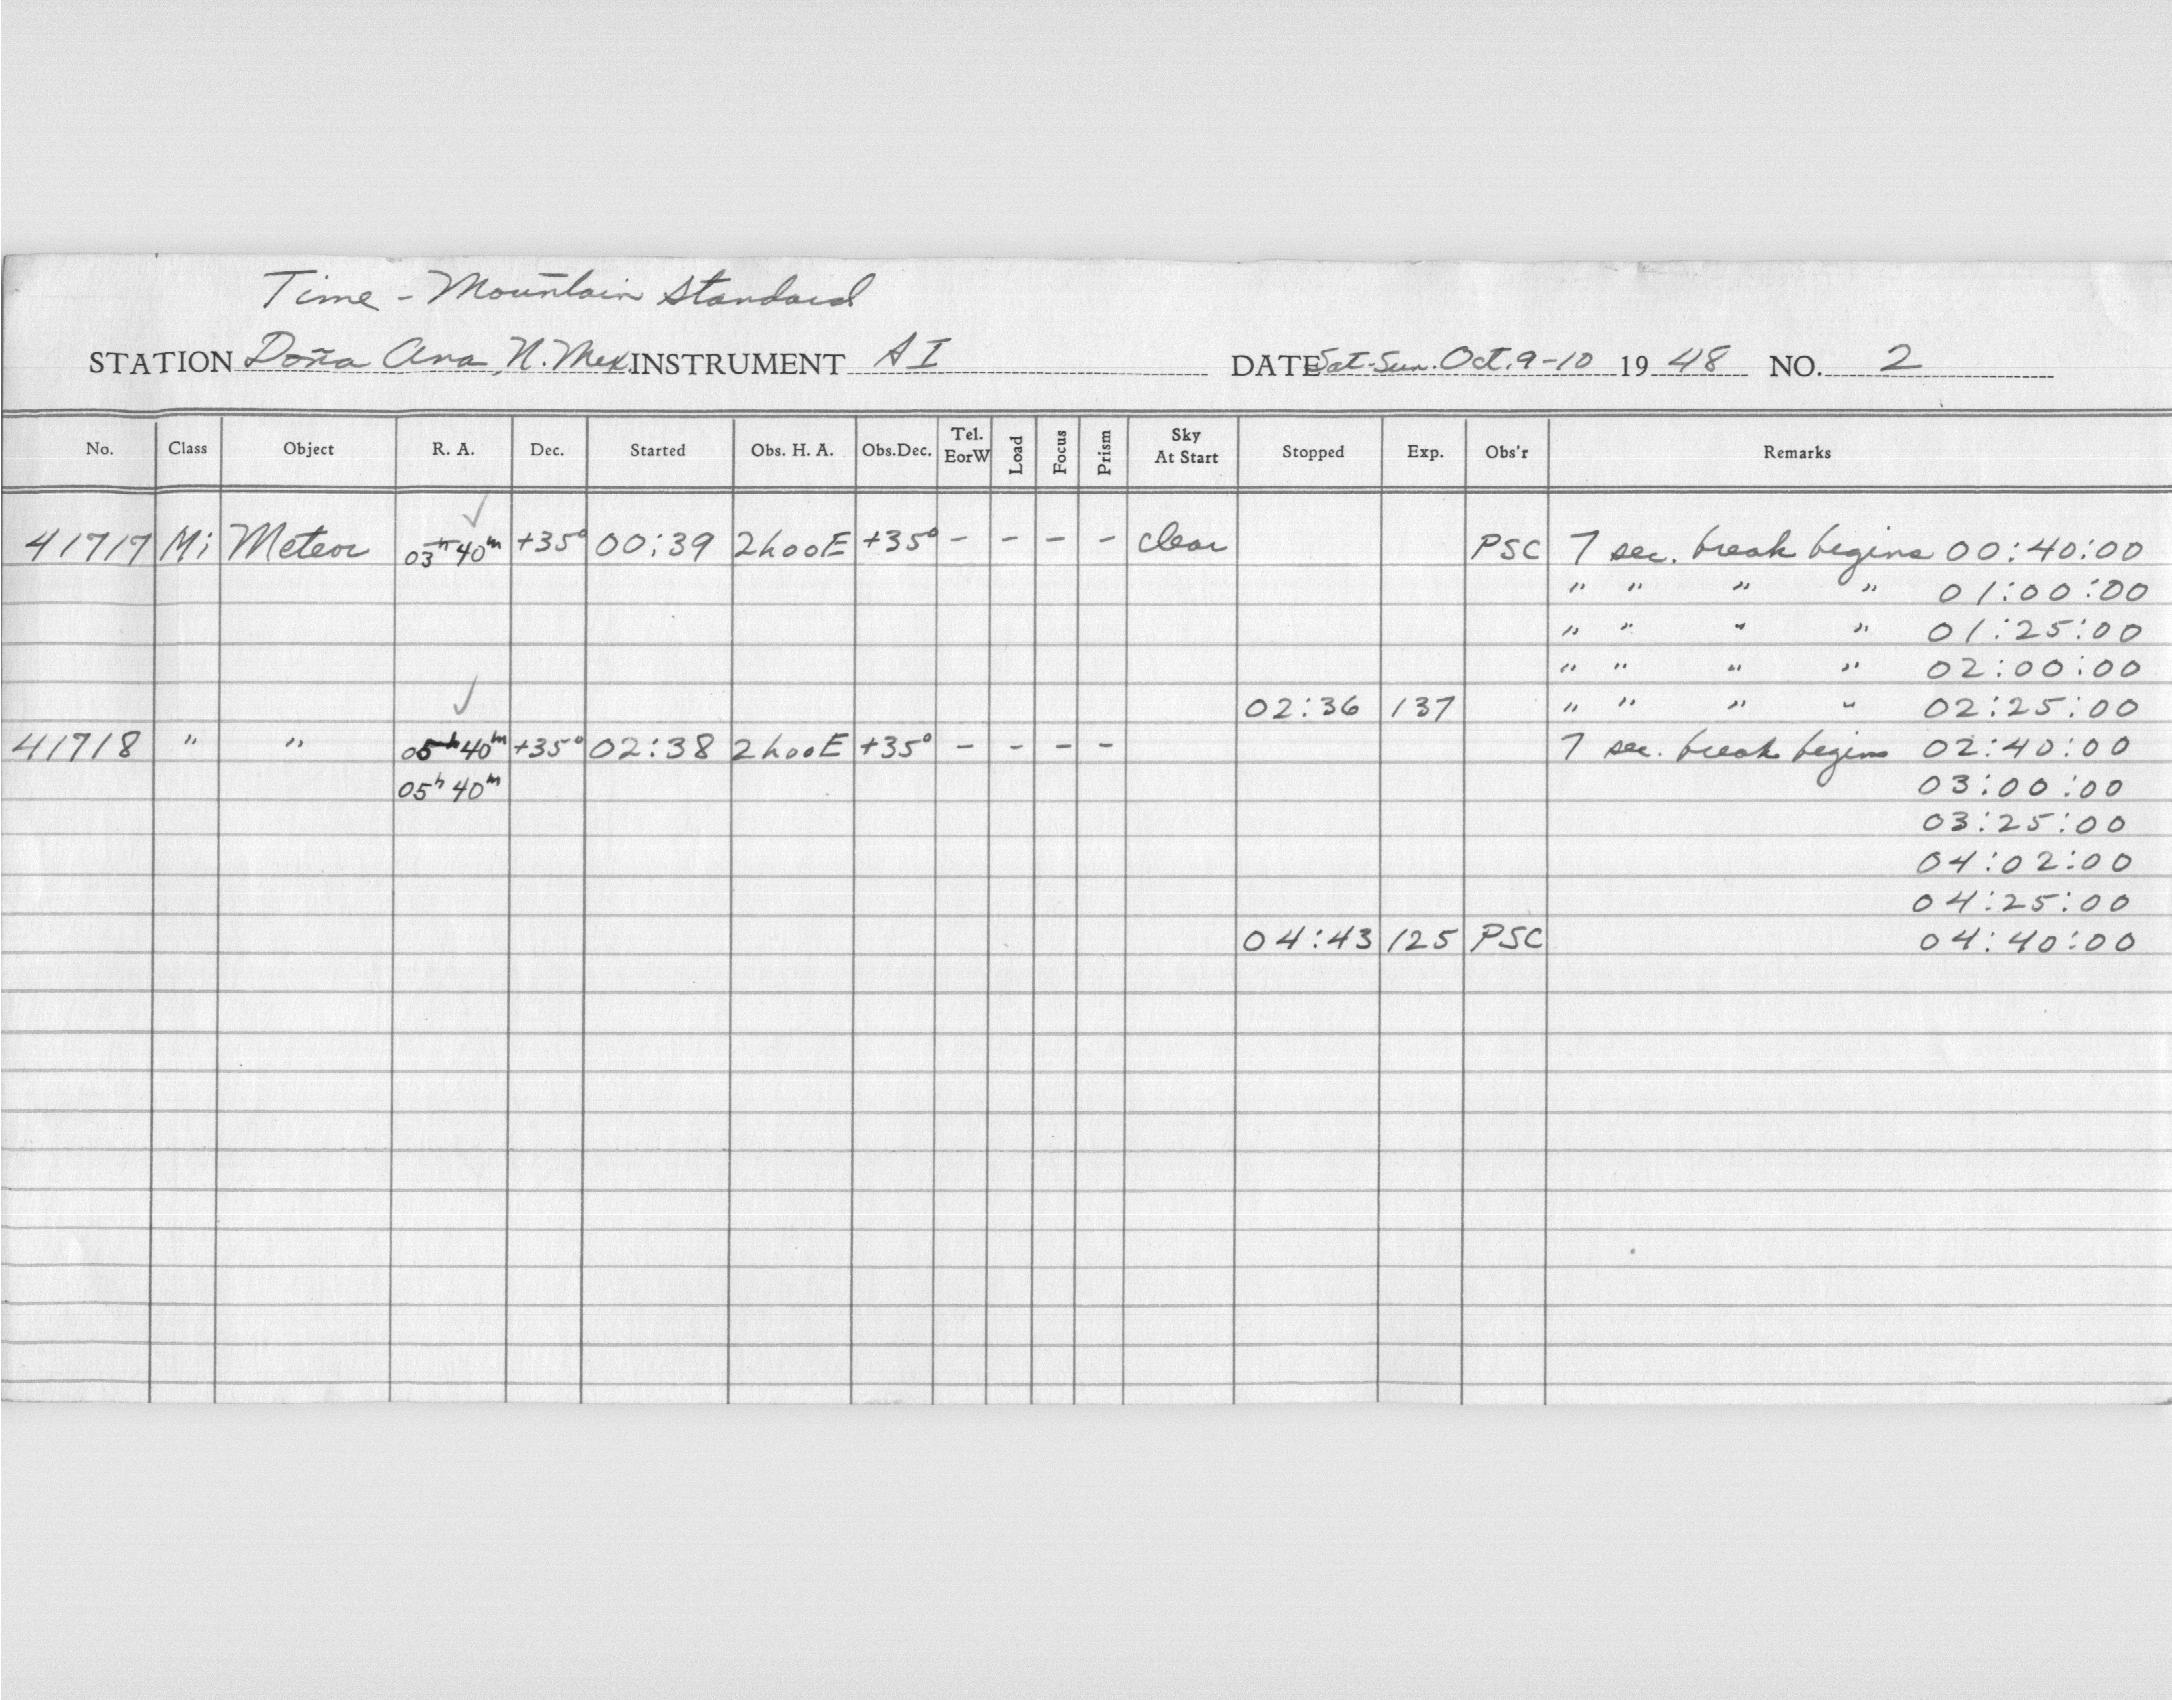 Time - Mountain Standard
STATION Doña Ana, N. Mex. INSTRUMENT AI DATE Sat-Sun. Oct. 9-10 19 48 NO. 2
No. Class Object R. A. Dec. Started Obs. H. A. Obs.Dec. Tel. EorW Load Focus Prism Sky At Start Stopped Exp. Obs'r Remarks
41717 Mi Meteor 03h 40m +35° 00:39 2h00E +35° - - - - clear PSC 7 sec. break begins 00:40:00
" " " " 01:00:00
" " " " 01:25:00
" " " " 02:00:00
02:36 137 " " " " 02:25:00
41718 " " 05h 40m +35° 02:38 2h00E +35° - - - - 7 sec. break begins 02:40:00
05h 40m 03:00:00
03:25:00
04:02:00
04:25:00
04:43 125 PSC 04:40:00